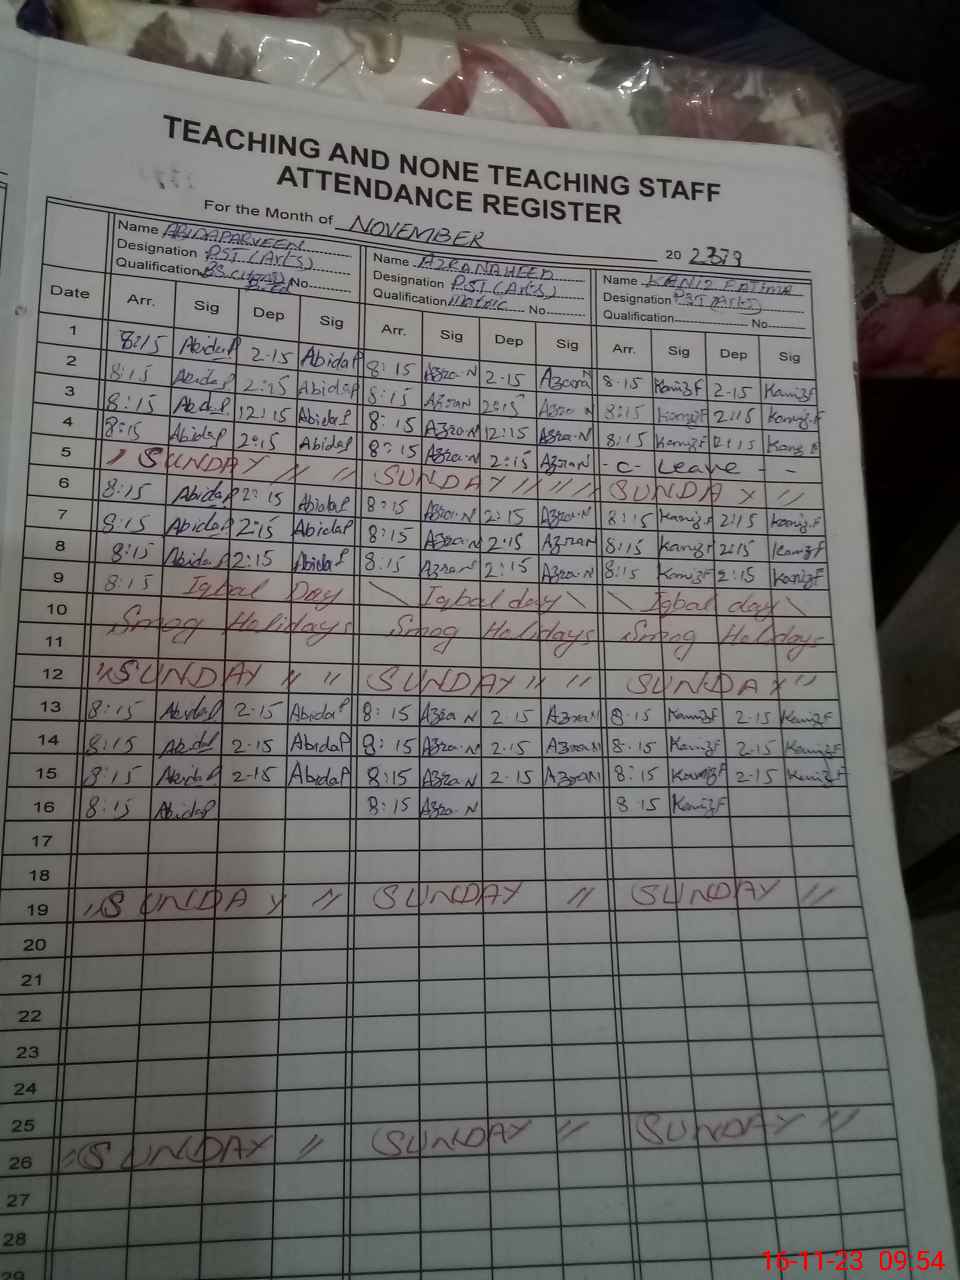 TEACHING AND NONE TEACHING STAFF
ATTENDANCE REGISTER
For the Month of NOVEMBER 20 23
Name ABIDAPARVEEN Name AZRANAHEED Name KANIZ FATIMA
Designation PST (Arts) Designation PST (Arts) Designation PST (Arts)
Qualification No Qualification Matric No Qualification No
Date Arr. Sig Dep Sig Arr. Sig Dep Sig Arr. Sig Dep Sig
1 8:15 AbidaP 2-15 AbidaP 8:15 Azra-N 2-15 Azra N 8-15 KanizF 2-15 KanizF
2 8:15 AbidaP 2:15 AbidaP 8:15 AzraN 2:15 Azra N 8:15 KanizF 2:15 KanizF
3 8:15 AbidaP 12:15 AbidaP 8:15 Azra-N 12:15 Azra-N 8:15 KanizF 12:15 Kaniz F
4 8:15 AbidaP 2:15 AbidaP 8:15 Azra-N 2:15 AzraN - C - Leave - -
5 SUNDAY " " SUNDAY " " " SUNDAY "
6 8:15 AbidaP 2:15 AbidaP 8:15 Azra-N 2:15 Azra-N 8:15 KanizF 2:15 KanizF
7 8:15 AbidaP 2:15 AbidaP 8:15 Azra-N 2-15 AzraN 8:15 KanizF 2:15 KanizF
8 8:15 AbidaP 2:15 AbidaP 8:15 AzraN 2:15 Azra-N 8:15 KanizF 2:15 KanizF
9 8:15 Iqbal Day \ Iqbal day \ \ Iqbal day \
10 Smog Holidays Smog Holidays Smog Holidays
11
12 "SUNDAY " " SUNDAY " " SUNDAY "
13 8:15 AbidaP 2-15 AbidaP 8:15 Azra N 2-15 AzraN 8-15 KanizF 2-15 KanizF
14 8:15 AbidaP 2-15 AbidaP 8:15 Azra-N 2-15 AzraN 8-15 KanizF 2-15 KanizF
15 8:15 AbidaP 2-15 AbidaP 8:15 Azra-N 2-15 AzraN 8:15 KanizF 2-15 KanizF
16 8:15 AbidaP 8:15 Azra-N 8 15 KanizF
17
18
19 "SUNDAY " SUNDAY " SUNDAY "
20
21
22
23
24
25
26 "SUNDAY " SUNDAY " SUNDAY "
27
28
29
16-11-23 09:54